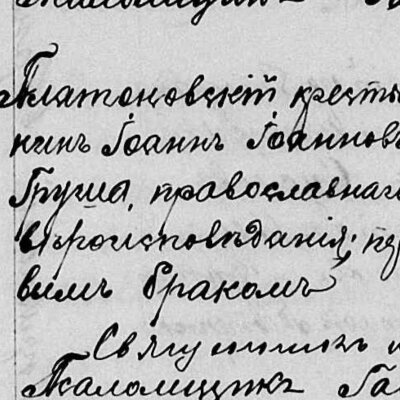 Платоновскій кресть
нинъ Іоаннъ Іоаннов
Груша, православнаго
вѣроисповѣданія; пе
вымъ бракомъ
Священникъ